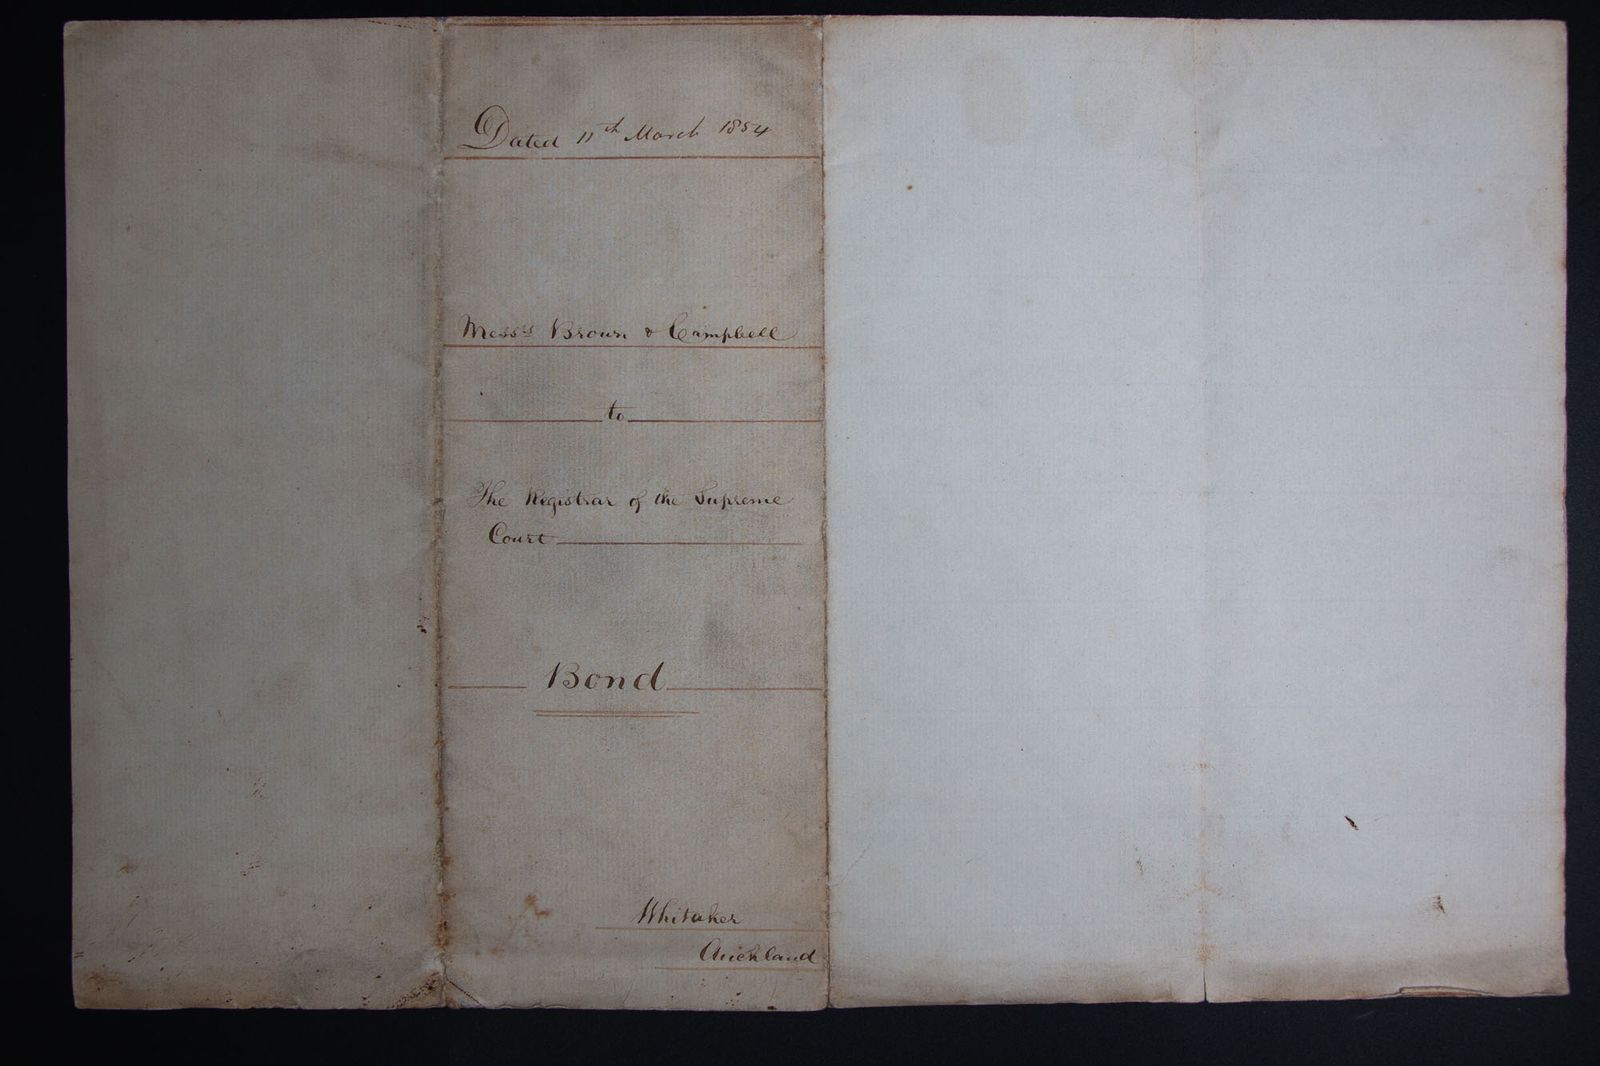 Dated 11th March 1854
Messrs Brown & Campbell
to
The Registrar of the Supreme
Court
Bond
Whitaker
Auckland